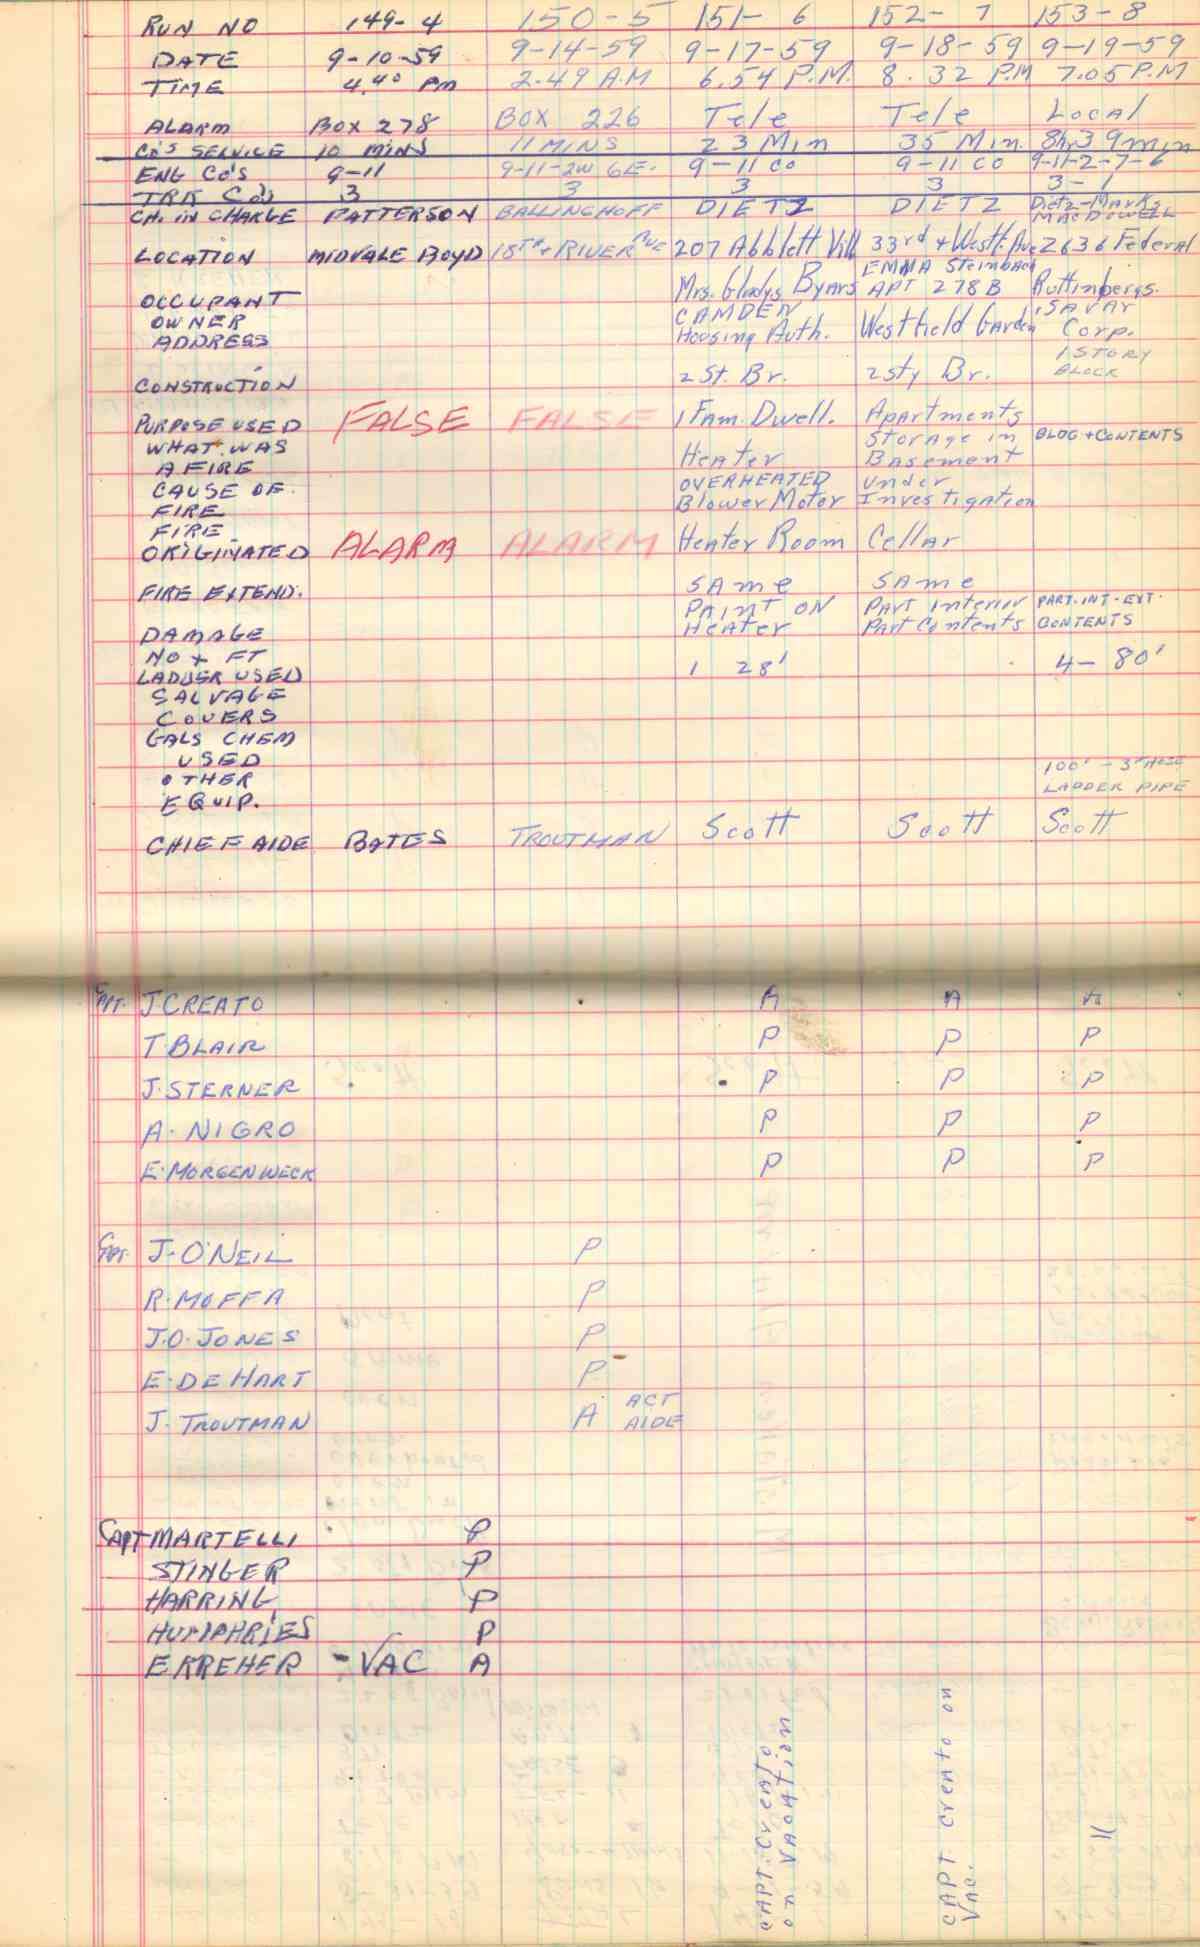 RUN NO 149-4 150-5 151- 6 152- 7 153-8
DATE 9-10-59 9-14-59 9-17-59 9-18-59 9-19-59
TIME 4.40 PM 2.49 A.M 6.54 P.M. 8.32 P.M 7.05 P.M
ALARM BOX 278 BOX 226 Tele Tele Local
CO'S SERVICE 10 MINS 11 MINS 23 Min 35 Min. 8hr 39min
ENG CO'S 9-11 9-11-2W 6E. 9-11 CO 9-11 CO 9-11-2-7-6
TRK CO'S 3 3 3 3 3-1
CH. IN CHARGE PATTERSON BALLINGHOFF DIETZ DIETZ Dietz-Marks MACDOWELL
LOCATION MIDVALE BOYD 18TH + RIVER AVE 207 Abblett Vill 33rd + Westf. Ave 2636 Federal
OCCUPANT Mrs. Gladys Byars EMMA Steinbach APT 278B Ruttinbergs.
OWNER CAMDEN ISAVAR
ADDRESS Housing Auth. Westfield Garden Corp.
CONSTRUCTION 2 St. Br. 2 sty Br. 1 STORY BLOCK
PURPOSE USED FALSE FALSE 1 Fam. Dwell. Apartments
WHAT WAS Storage in BLDG + CONTENTS
A FIRE Heater Basement
CAUSE OF. OVERHEATED under
FIRE Blower Motor Investigation
FIRE
ORIGINATED ALARM ALARM Heater Room Cellar
FIRE EXTEND. SAme SAme
PAINT ON Part Interior PART. INT-EXT.
DAMAGE HeaTer Part Contents CONTENTS
NO + FT
LADDER USED 1 28' 4- 80'
SALVAGE
COVERS
GALS CHEM
USED
OTHER 100' - 3" HOSE
EQUIP. LADDER PIPE
CHIEF AIDE BATES TROUTMAN Scott Scott Scott
CPT. J. CREATO A A
T. BLAIR P P P
J. STERNER P P P
A. NIGRO P P P
E. MORGENWECK P P P
CPT. J. O'NEIL P
R. MOFFA P
J.O. JONES P
E. DE HART P
J. TROUTMAN A ACT AIDE
CAPT MARTELLI P
STINGER P
HARRING P
HUMPHRIES P
E KREHER - VAC A
CAPT. Creato
on VACATION
CAPT Creato on
VAC.
"